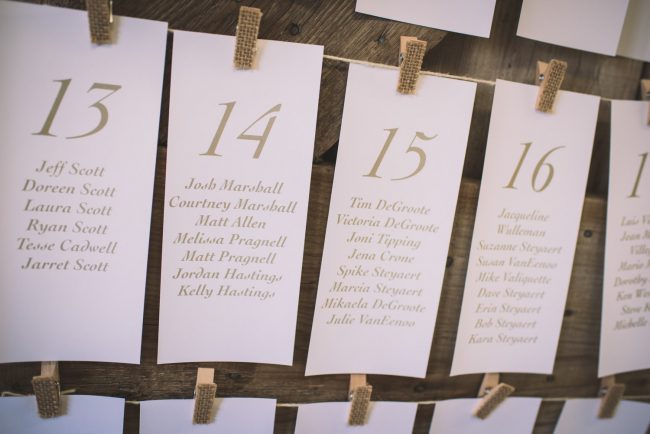 13
Jeff Scott
Doreen Scott
Laura Scott
Ryan Scott
Tesse Cadwell
Jarret Scott
14
Josh Marshall
Courtney Marshall
Matt Allen
Melissa Pragnell
Matt Pragnell
Jordan Hastings
Kelly Hastings
15
Tim DeGroote
Victoria DeGroote
Joni Tipping
Jena Crone
Spike Steyaert
Marcia Steyaert
Mikaela DeGroote
Julie VanEenoo
16
Jacqueline
Walleman
Suzanne Steyaert
Susan VanEenoo
Mike Valiquette
Dave Steyaert
Erin Steyaert
Bob Steyaert
Kara Steyaert
1
Luis
Jean
Marie
Dorothy
Ken
Steve
Michelle